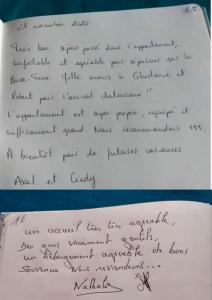 21 novembre 2020
15
Très bon séjour passé dans l'appartement,
confortable et agréable pour séjourner sur la
Basse-Terre. Mille mercis à Ghislaine et
Robert pour l'accueil chaleureux !
L'appartement est super propre, équipé et
suffisamment grand. Nous recommandons +++.
A bientôt pour de futures vacances
Axel et Cindy
16
un accueil très très agréable,
Des gens vraiment gentils,
un hébergement agréable de bons
Souvenirs Nous reviendrons...
Nathalie